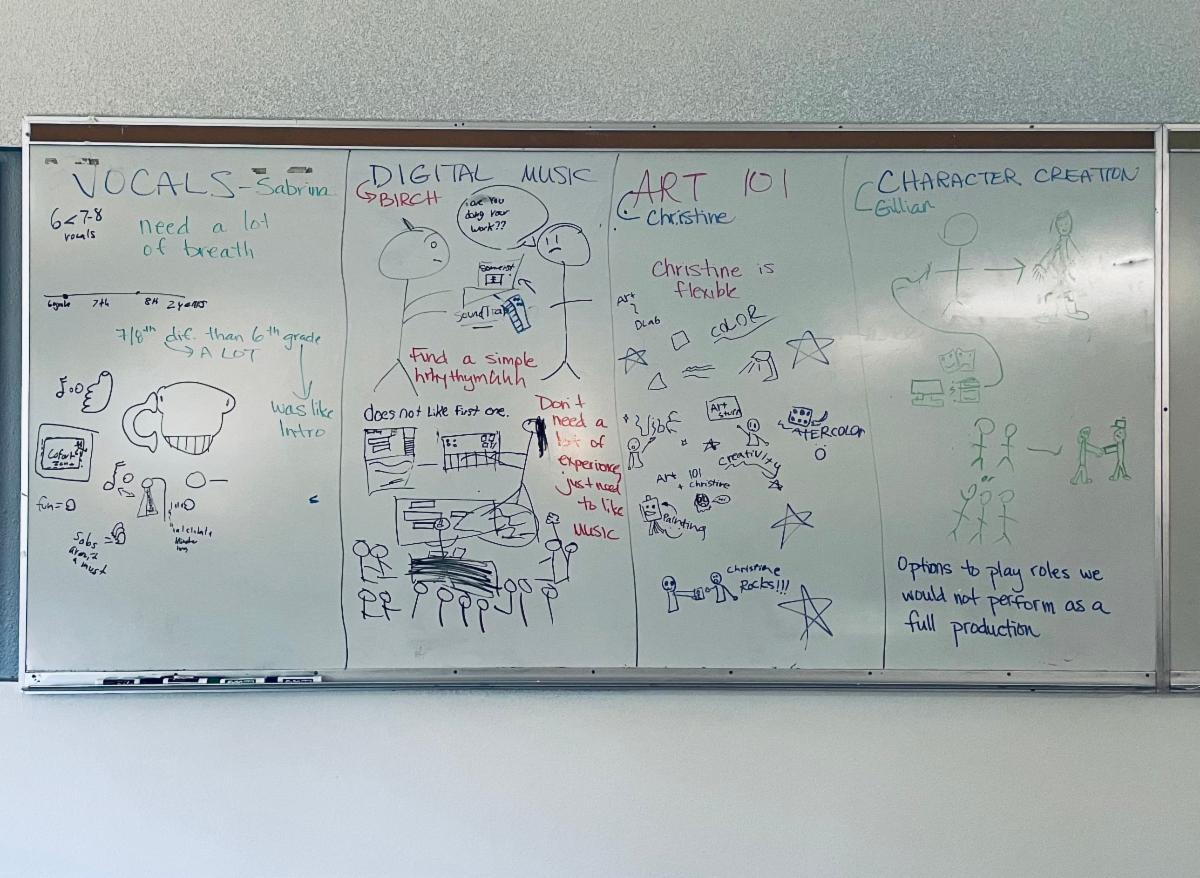 VOCALS - Sabrina
6<7-8
vocals
need a lot
of breath
7th
8th
2 years
7/8th dif. than 6th grade
A LOT
was like
Intro
Zone
fun =
DIGITAL MUSIC
BIRCH
are you
doing your
work??
Find a simple
does not like first one.
Don't
need a
lot of
experience
just need
to like
MUSIC
ART 101
Christine
Christine is
flexible
Art
DLab
COLOR
Art
ATERCOLOR
creativity
Art 101
+ Christine
Painting
Christine
Rocks!!!
CHARACTER CREATION
Gillian
Options to play roles we
would not perform as a
full production